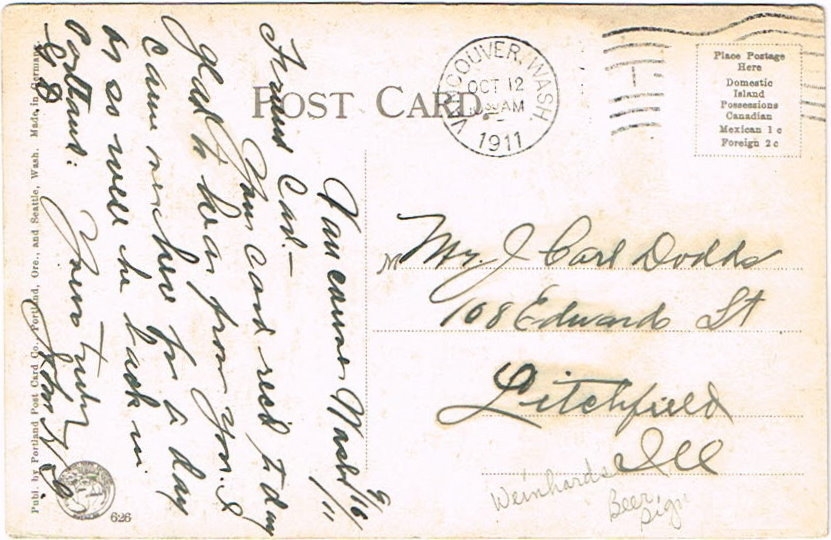 POST CARD
VANCOUVER, WASH.
OCT 12
AM
1911
Place Postage
Here
Domestic
Island
Possessions
Canadian
Mexican 1 c
Foreign 2 c
Vancouver Wash
9/16/11
Friend Carl—
Your card rec'd today
glad to hear from you. I
came here for a day
or so will be back in
Portland.
Yours truly
John
Mr. J Carl Dodds
108 Edwards St
Litchfield
Ill
Weinhards
Beer
Sign
Publ. by Portland Post Card Co., Portland, Ore., and Seattle, Wash. Made in Germany.
626